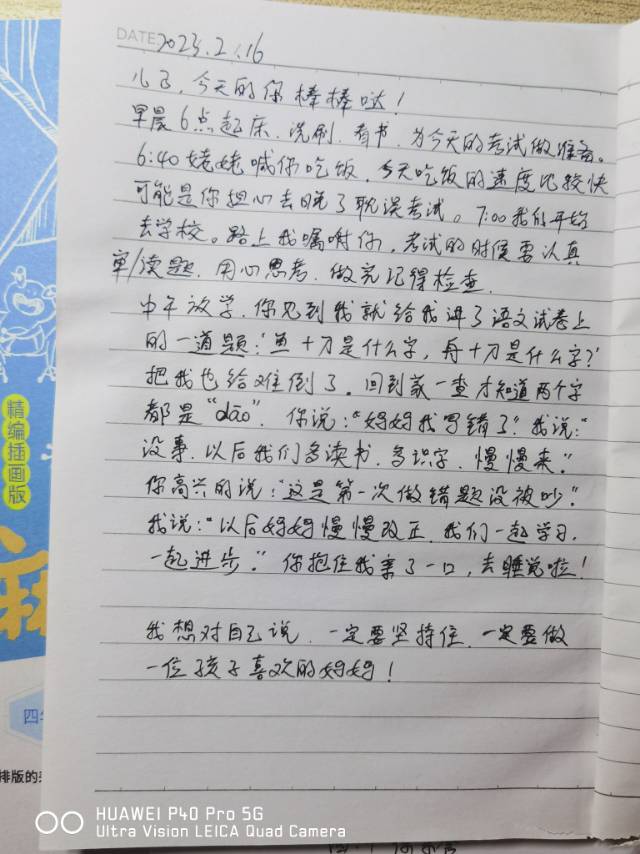 DATE 2023.2.16
儿子,今天的你棒棒哒!
早晨6点起床、洗刷、看书、为今天的考试做准备。
6:40姥姥喊你吃饭,今天吃饭的速度比较快
可能是你担心去晚了耽误考试。7:00我们开始
去学校。路上我嘱咐你,考试的时候要认真
审/读题、用心思考、做完记得检查。
中午放学,你见到我就给我讲了语文试卷上
的一道题:“鱼+刀是什么字,舟+刀是什么字?”
把我也给难倒了。回到家一查才知道两个字
都是“dāo”。你说:“妈妈我写错了”我说:“
没事,以后我们多读书、多识字、慢慢来。”
你高兴的说:“这是第一次做错题没被吵。”
我说:“以后妈妈慢慢改正,我们一起学习、
一起进步。”你抱住我亲了一口,去睡觉啦!
我想对自己说,一定要坚持住,一定要做
一位孩子喜欢的妈妈!
精编插画版
四
排版的
HUAWEI P40 Pro 5G
Ultra Vision LEICA Quad Camera